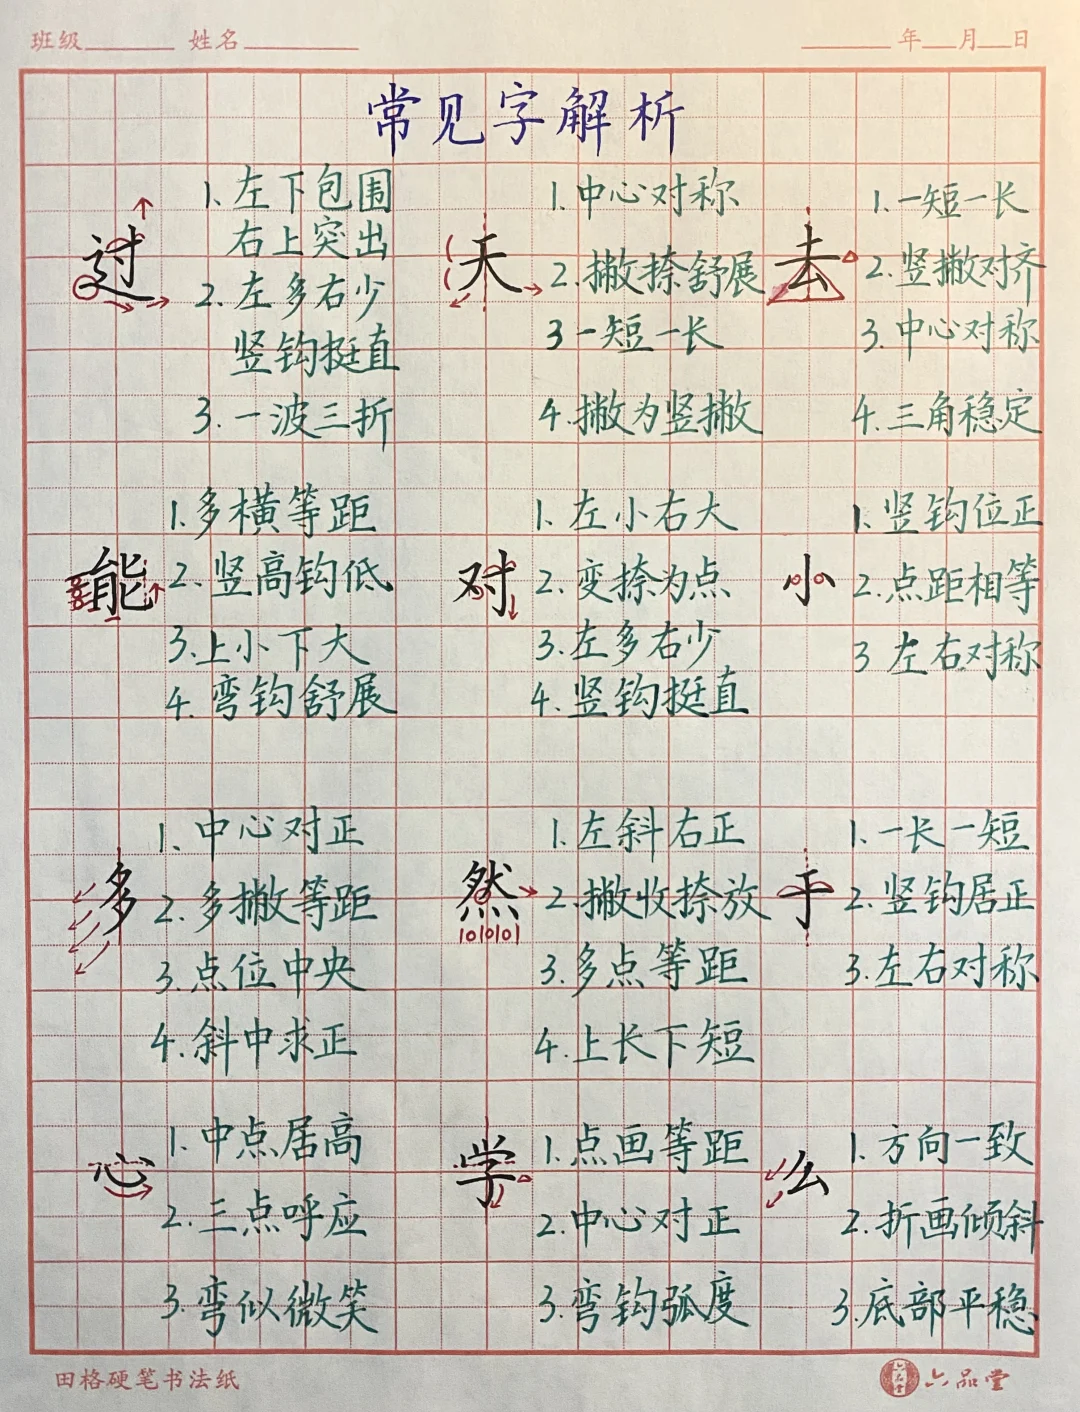 班级 姓名 年 月 日
常见字解析
过
1. 左下包围
右上突出
2. 左多右少
竖钩挺直
3. 一波三折
天
1. 中心对称
2. 撇捺舒展
3 一短一长
4. 撇为竖撇
去
1. 一短一长
2. 竖撇对齐
3. 中心对称
4. 三角稳定
能
1. 多横等距
2. 竖高钩低
3. 上小下大
4. 弯钩舒展
对
1. 左小右大
2. 变捺为点
3. 左多右少
4. 竖钩挺直
小
1. 竖钩位正
2. 点距相等
3 左右对称
多
1. 中心对正
2. 多撇等距
3. 点位中央
4. 斜中求正
然
1010101
1. 左斜右正
2. 撇收捺放
3. 多点等距
4. 上长下短
于
1. 一长一短
2. 竖钩居正
3. 左右对称
心
1. 中点居高
2. 三点呼应
3. 弯似微笑
学
1. 点画等距
2. 中心对正
3. 弯钩弧度
么
1. 方向一致
2. 折画倾斜
3. 底部平稳
田格硬笔书法纸
六品堂 六品堂